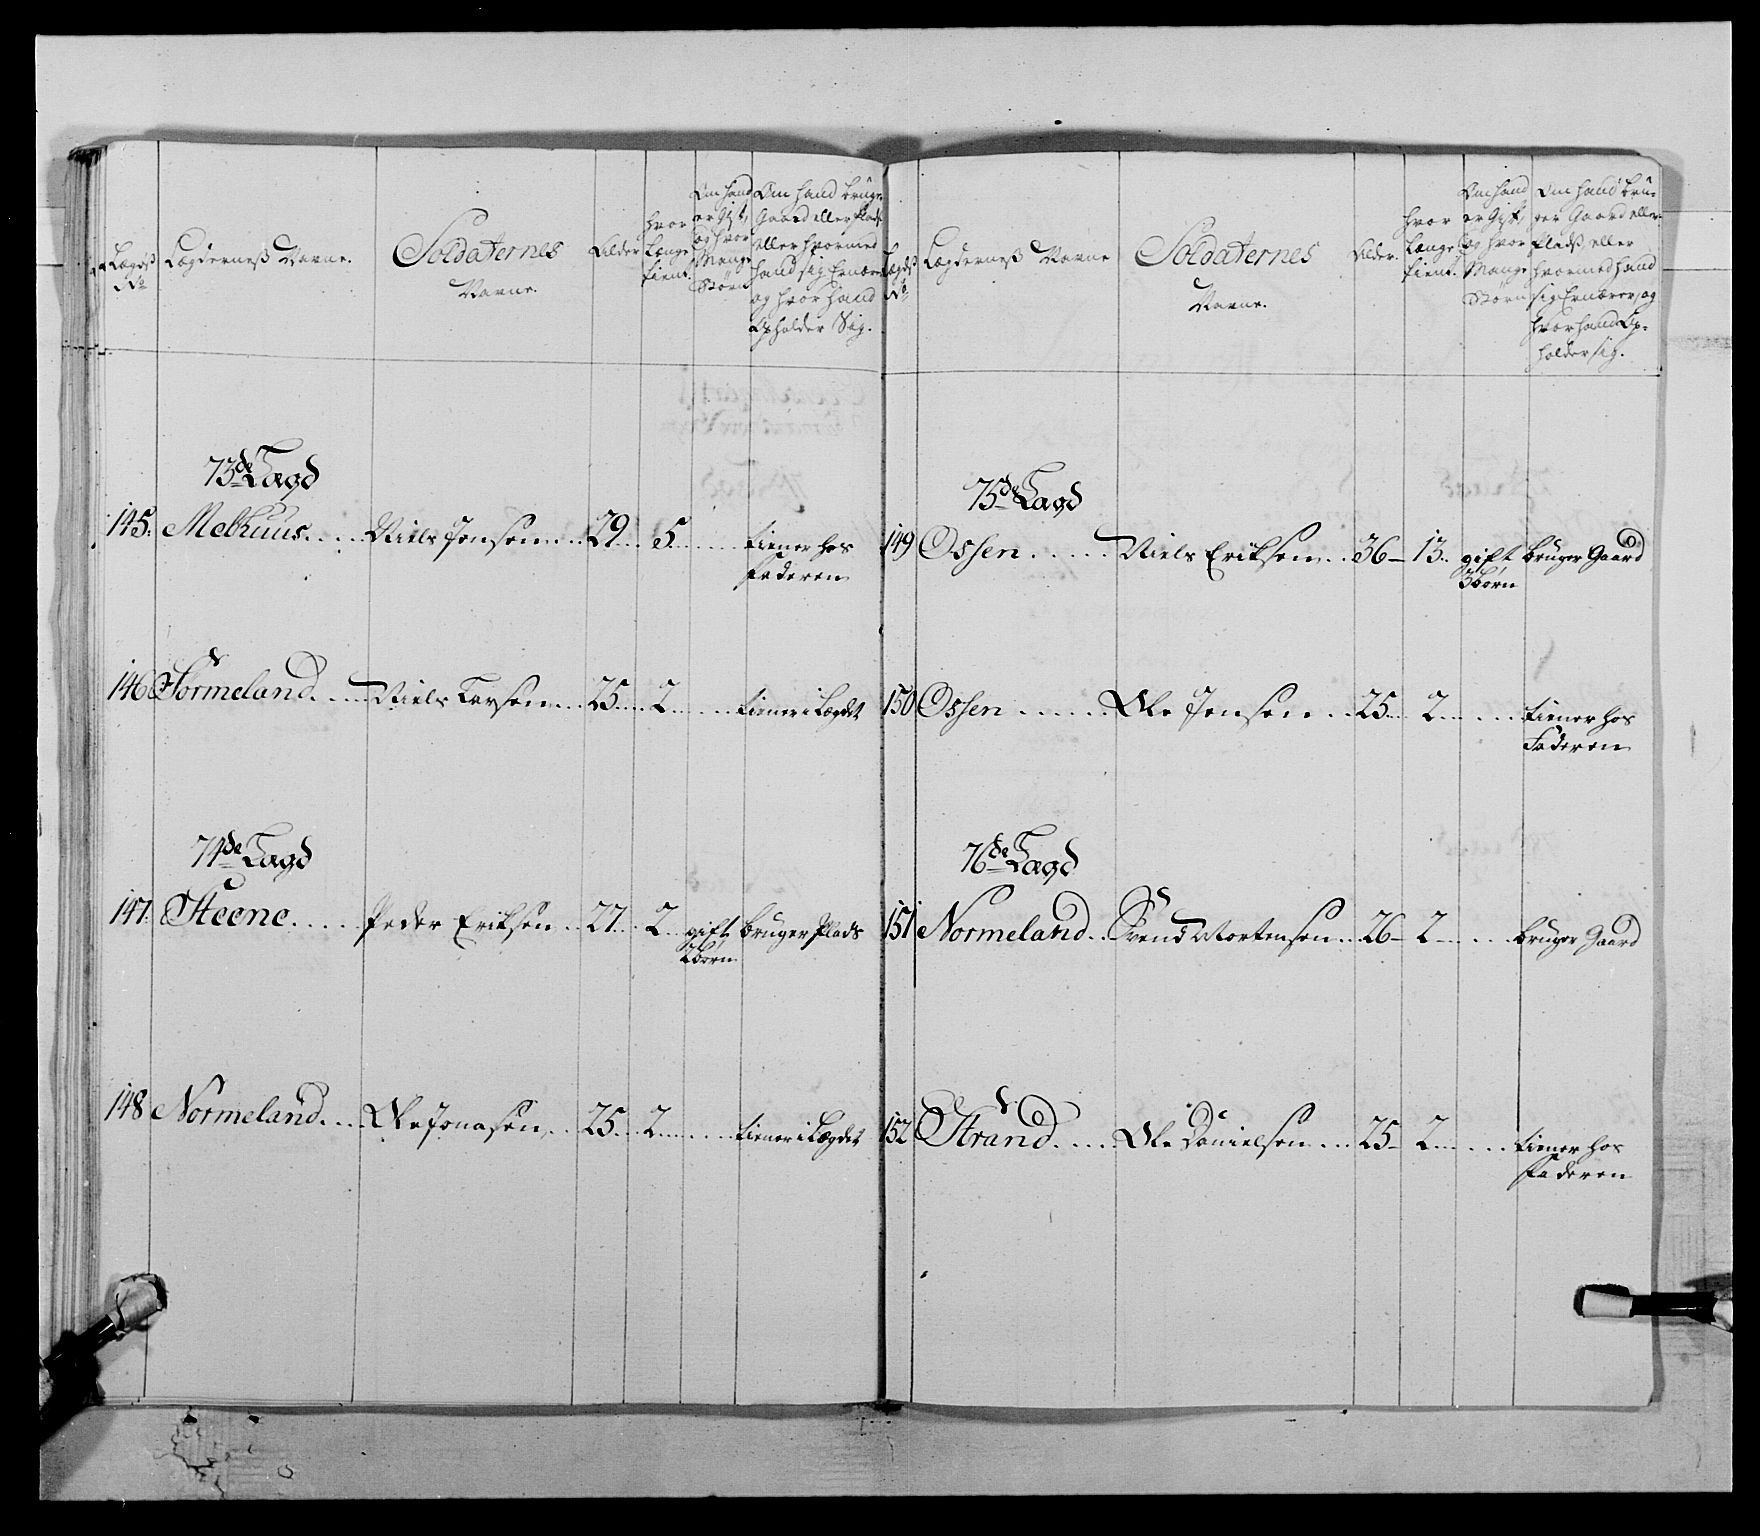 Lægdß No
Lægderneß Navne.
Soldaternes Navne.
Alder
hvor Længe tient.
Om hand er Gift, og hvor Mange Børn
Om hand bruger Gaard eller Plads eller hvormed hand sig Ernærer og hvor hand Opholder Sig.
73de Lægd
145. Melhuus..... Niels Jonsen.... 29.. 5.... tiener hos
Faderen
146 Sørmeland.... Niels Larsen... 25.... 2.... tiener i Lægdet
74de Lægd
147. Steene..... Peder Eriksen.. 27... 2.. gift bruger Plads
2 børn
148 Normeland... Ole Jonasen... 25... 2..... tiener i Lægdet
Lægdß No
Lægderneß Navne
Soldaternes Navne.
Alder.
hvor Længe tient.
Om hand er Gift, og hvor Mange Børn
Om hand bruger Gaard eller Pladß, eller hvormed hand sig Ernærer, og hvor hand Opholder sig.
75de Lægd
149 Ossen..... Niels Eriksen... 36– 13.. gift bruger Gaard
3 børn
150 Ossen...... Ole Jonsen... 25... 2..... tiener hos
Faderen
76de Lægd
151 Normeland.. Svend Mortensen.. 26– 2..... bruger Gaard
152 Strand..... Ole Danielsen... 25– 2..... tiener hos
Faderen